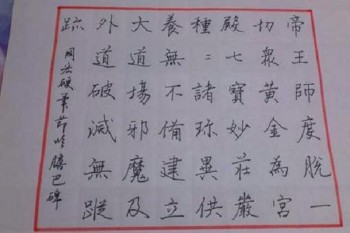 帝王師度脫一
切衆黃金為宮
殿七寶妙莊嚴
種〻諸珎異供
養無不備建立
大道場邪魔及
外道破滅無蹤
跡
硬筆節临膽巴碑